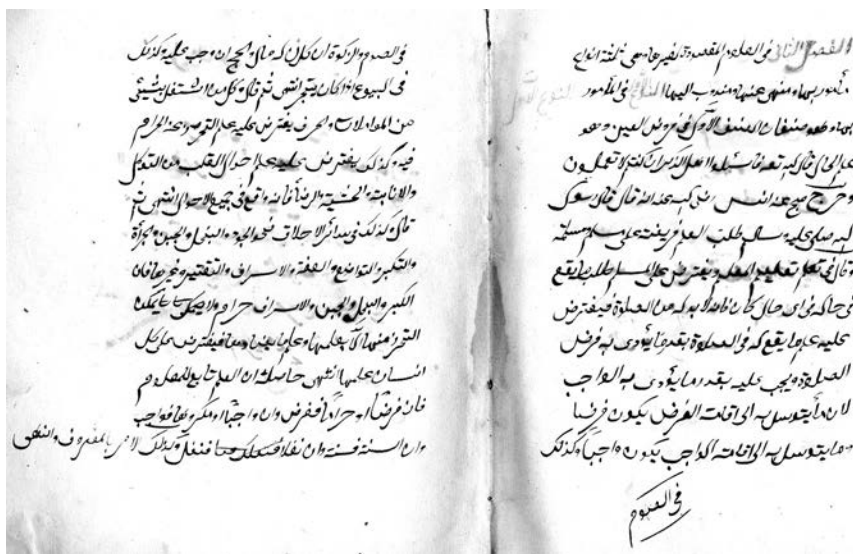 الفصل الثاني في العلوم المقصودة لغيرها وهي ثلثة انواع
مأمور بها ومنهي عنها ومندوب اليها النوع الأول في المأمور
بها وهو صنفان الصنف الأول في فروض العين وهو
علم الحال قال الله تعالى فاسئلوا اهل الذكر ان كنتم لا تعلمون
وخرج عن انس رضي الله عنه انه قال قال رسول
الله صلى عليه وسلم طلب العلم فريضة على كل مسلم
وقال في تعليم المتعلم ويفترض على المسلم طلب ما يقع
في حاله في اي حال كان فانه لا بد له من الصلوة فيفترض
عليه علم ما يقع له في الصلوة بقدر ما يؤدى به فرض
الصلوة ويجب عليه بقدر ما يؤدى به الواجب
لان ما يتوسل به الى اقامة الفرض يكون فرضا
وما يتوسل به الى اقامة الواجب يكون واجبا وكذلك
في الصوم
في الصوم والزكوة ان كان له مال والحج ان وجب عليه وكذلك
في البيوع اذا كان يتجر انتهى ثم قال وكل من اشتغل بشيئ
من المعاملات والحرف يفترض عليه علم التحرز عن الحرام
فيه وكذلك يفترض عليه علم احوال القلب من التوكل
والانابة والخشية والرضأ فانه واقع في جميع الاحوال انتهى ثم
قال وكذلك في سائر الاخلاق نحو الجود والبخل والجبن والجرأة
والتكبر والتواضع والعفة والاسراف والتقتير وغيرها فان
الكبر والبخل والجبن والاسراف حرام ولا يمكن
التحرز عنها الا بعلمها وعلم ما يضادها فيفترض على كل
انسان علمها انتهى حاصله ان العلم تابع للمعلوم
فان فرضا او حراما ففرض وان واجبا او مكروها فواجب
وان السنة فسنة وان نفلا فنفل وكذلك الامر بالمعروف والنهي